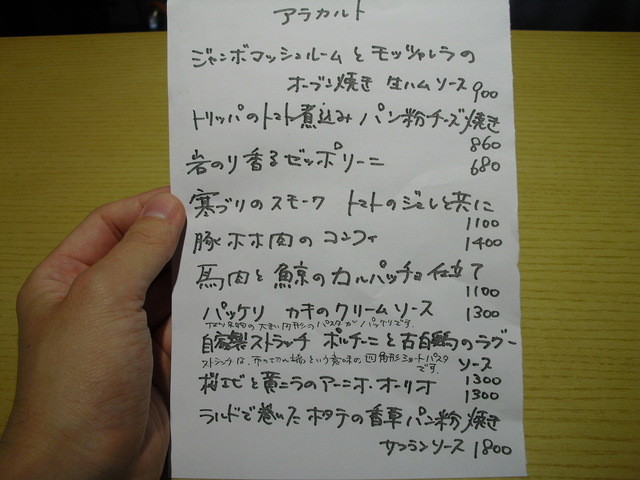 アラカルト
ジャンボマッシュルームとモッツァレラの
オーブン焼き 生ハムソース 900
トリッパのトマト煮込み パン粉チーズ焼き
860
岩のり香るゼッポリーニ 680
寒ブリのスモーク トマトのジュレと共に
1100
豚ホホ肉のコンフィ 1400
馬肉と鯨のカルパッチョ仕立て
1100
パッケリ カキのクリームソース 1300
の大きい円形のパスタがパッケリです。
自家製ストラッチ ポルチーニと古白鶏のラグー
ストラッチは、布の切れ端という意味の四角形ショートパスタ
です。 ソース
1300
桜エビと黄ニラのアーリオ・オーリオ 1300
ラルドで巻いたホタテの香草パン粉焼き
サフランソース 1800